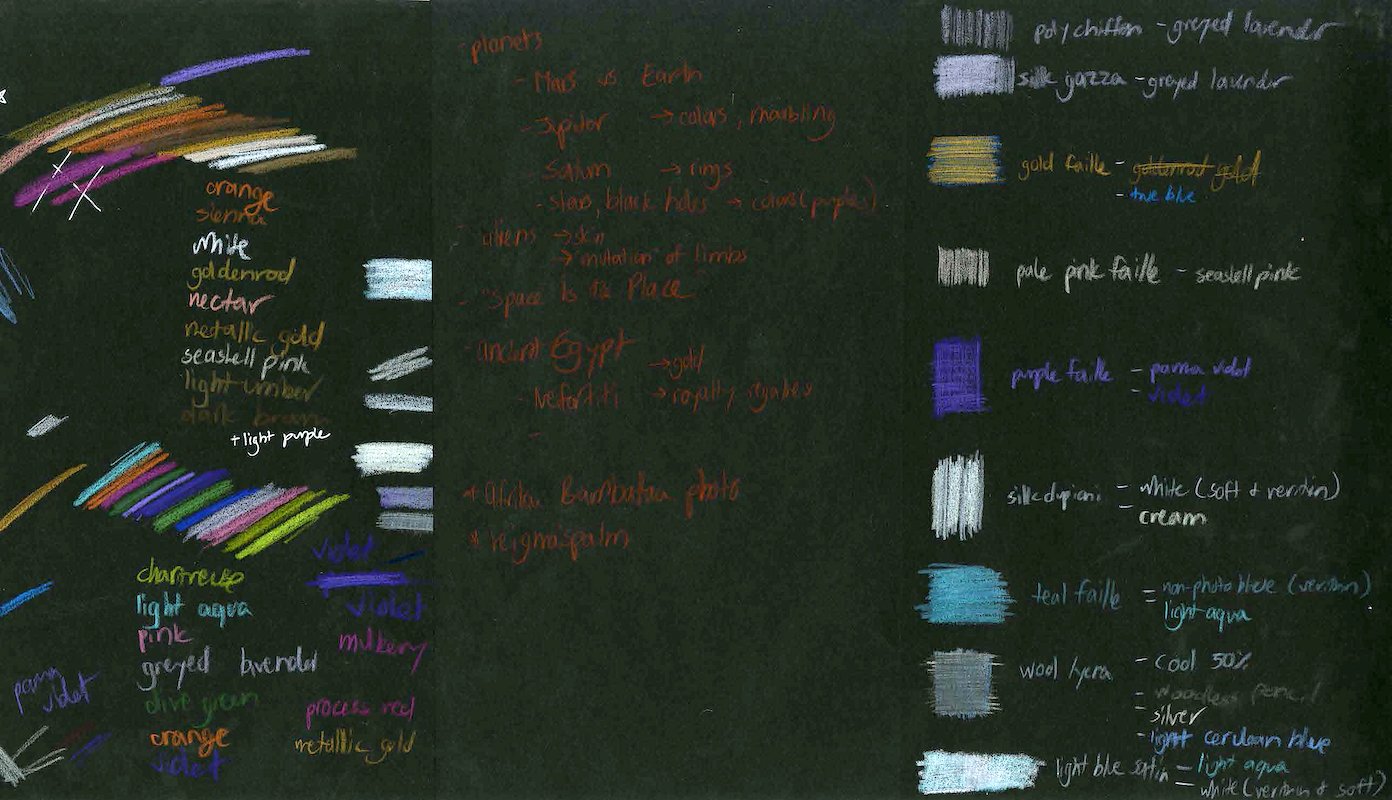 orange
sienna
white
goldenrod
nectar
metallic gold
seashell pink
light umber
dark brown
+ light purple
chartreuse
light aqua
pink
greyed lavender
olive green
orange
violet
violet
violet
mulberry
process red
metallic gold
parma violet
- planets
- Mars vs Earth
- Jupiter → colors, marbling
- Saturn → rings
- stars, black holes → colors (purples)
- aliens → skin
→ mutation of limbs
- "Space Is the Place"
- ancient Egypt → gold
- Nefertiti → royalty
-
* Afrika Bambataa photo
*
poly chiffon - greyed lavender
silk gazza - greyed lavender
gold faille - goldenrod gold
- true blue
pale pink faille - seashell pink
purple faille - parma violet
- violet
silk dupioni - white (soft + verithin)
- cream
teal faille - non-photo blue (verithin)
- light aqua
wool lycra - cool 50%
- woodless pencil
- silver
- light cerulean blue
light blue satin - light aqua
- white (verithin + soft)